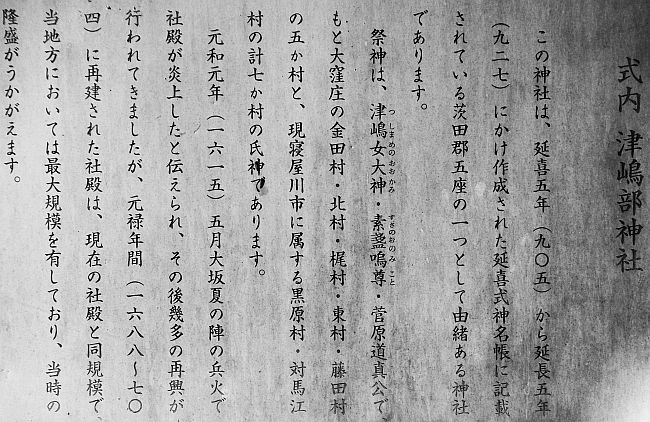 式内 津嶋部神社
この神社は、延喜五年（九〇五）から延長五年
（九二七）にかけ作成された延喜式神名帳に記載
されている茨田郡五座の一つとして由緒ある神社
であります。
祭神は、津嶋女大神・素盞嗚尊・菅原道真公で、
つしまめのおおかみ すさのおのみこと
もと大窪庄の金田村・北村・梶村・東村・藤田村
の五か村と、現寝屋川市に属する黒原村・対馬江
村の計七か村の氏神であります。
元和元年（一六一五）五月大坂夏の陣の兵火で
社殿が炎上したと伝えられ、その後幾多の再興が
行われてきましたが、元禄年間（一六八八〜七〇
四）に再建された社殿は、現在の社殿と同規模で、
当地方においては最大規模を有しており、当時の
隆盛がうかがえます。